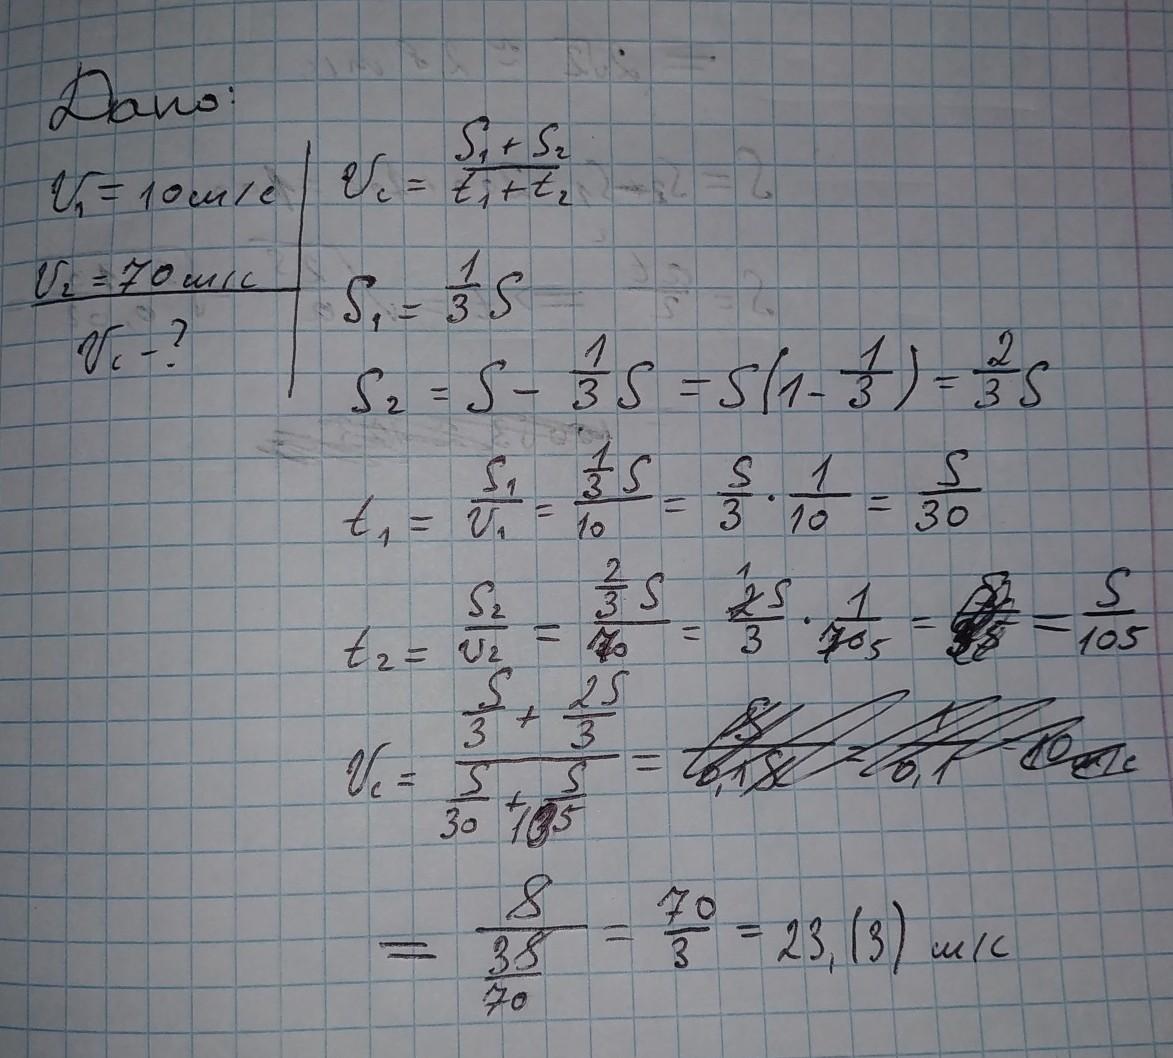 Дано:
V₁ = 10 м/с
V₂ = 70 м/с
Vс - ?
Vс = (S₁ + S₂)/(t₁ + t₂)
S₁ = 1/3 S
S₂ = S - 1/3 S = S(1 - 1/3) = 2/3 S
t₁ = S₁/V₁ = (1/3 S)/10 = S/3 · 1/10 = S/30
t₂ = S₂/V₂ = (2/3 S)/70 = 2S/3 · 1/70 = = S/105
Vс = (S/3 + 2S/3)/(S/30 + S/105) =
= S/(3S/70) = 70/3 = 23,(3) м/с